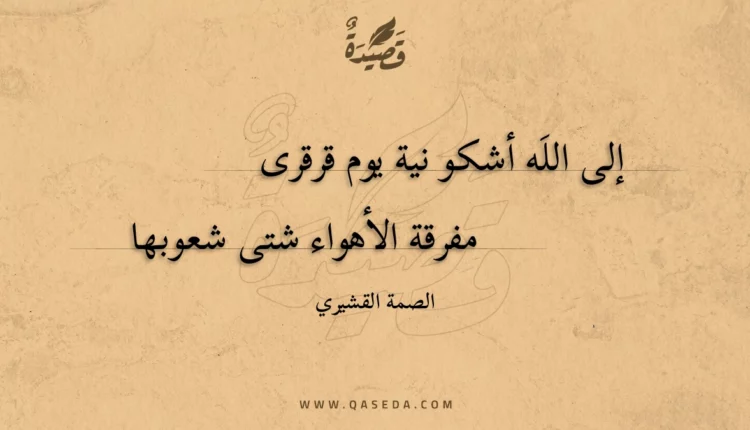 قَصِيْدَةٌ
إلى اللَه أشكو نية يوم قرقرى
مفرقة الأهواء شتى شعوبها
الصمة القشيري
WWW.QASEDA.COM